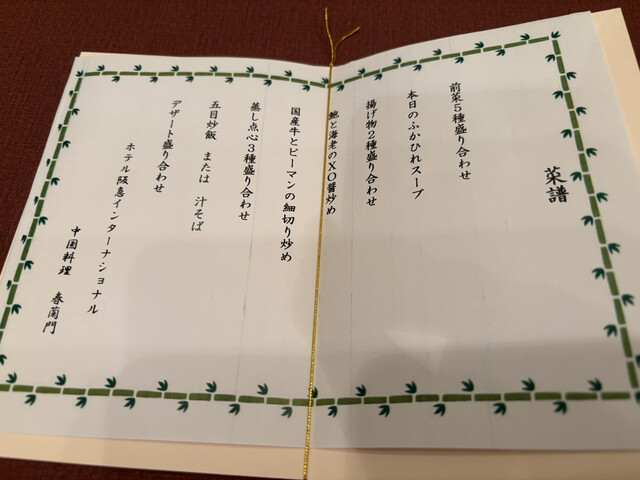 菜譜
前菜５種盛り合わせ
本日のふかひれスープ
揚げ物２種盛り合わせ
鮑と海老のＸＯ醤炒め
国産牛とピーマンの細切り炒め
蒸し点心３種盛り合わせ
五目炒飯 または 汁そば
デザート盛り合わせ
ホテル阪急インターナショナル
中国料理 春蘭門